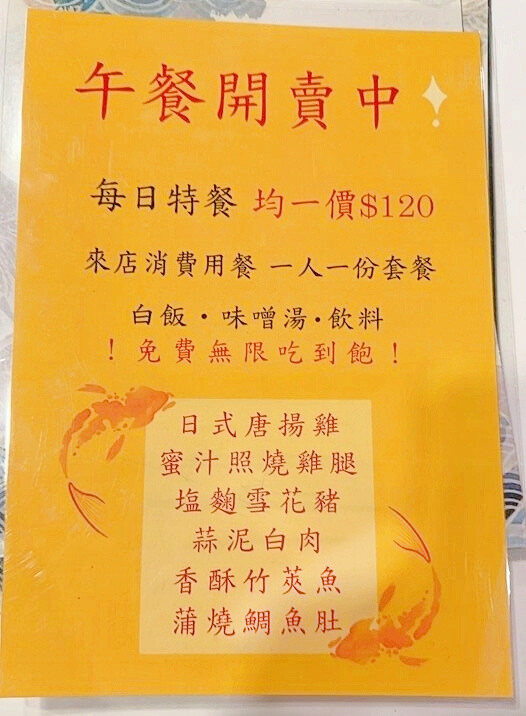 午餐開賣中
每日特餐 均一價$120
來店消費用餐 一人一份套餐
白飯・味噌湯・飲料
！免費無限吃到飽！
日式唐揚雞
蜜汁照燒雞腿
塩麴雪花豬
蒜泥白肉
香酥竹莢魚
蒲燒鯛魚肚